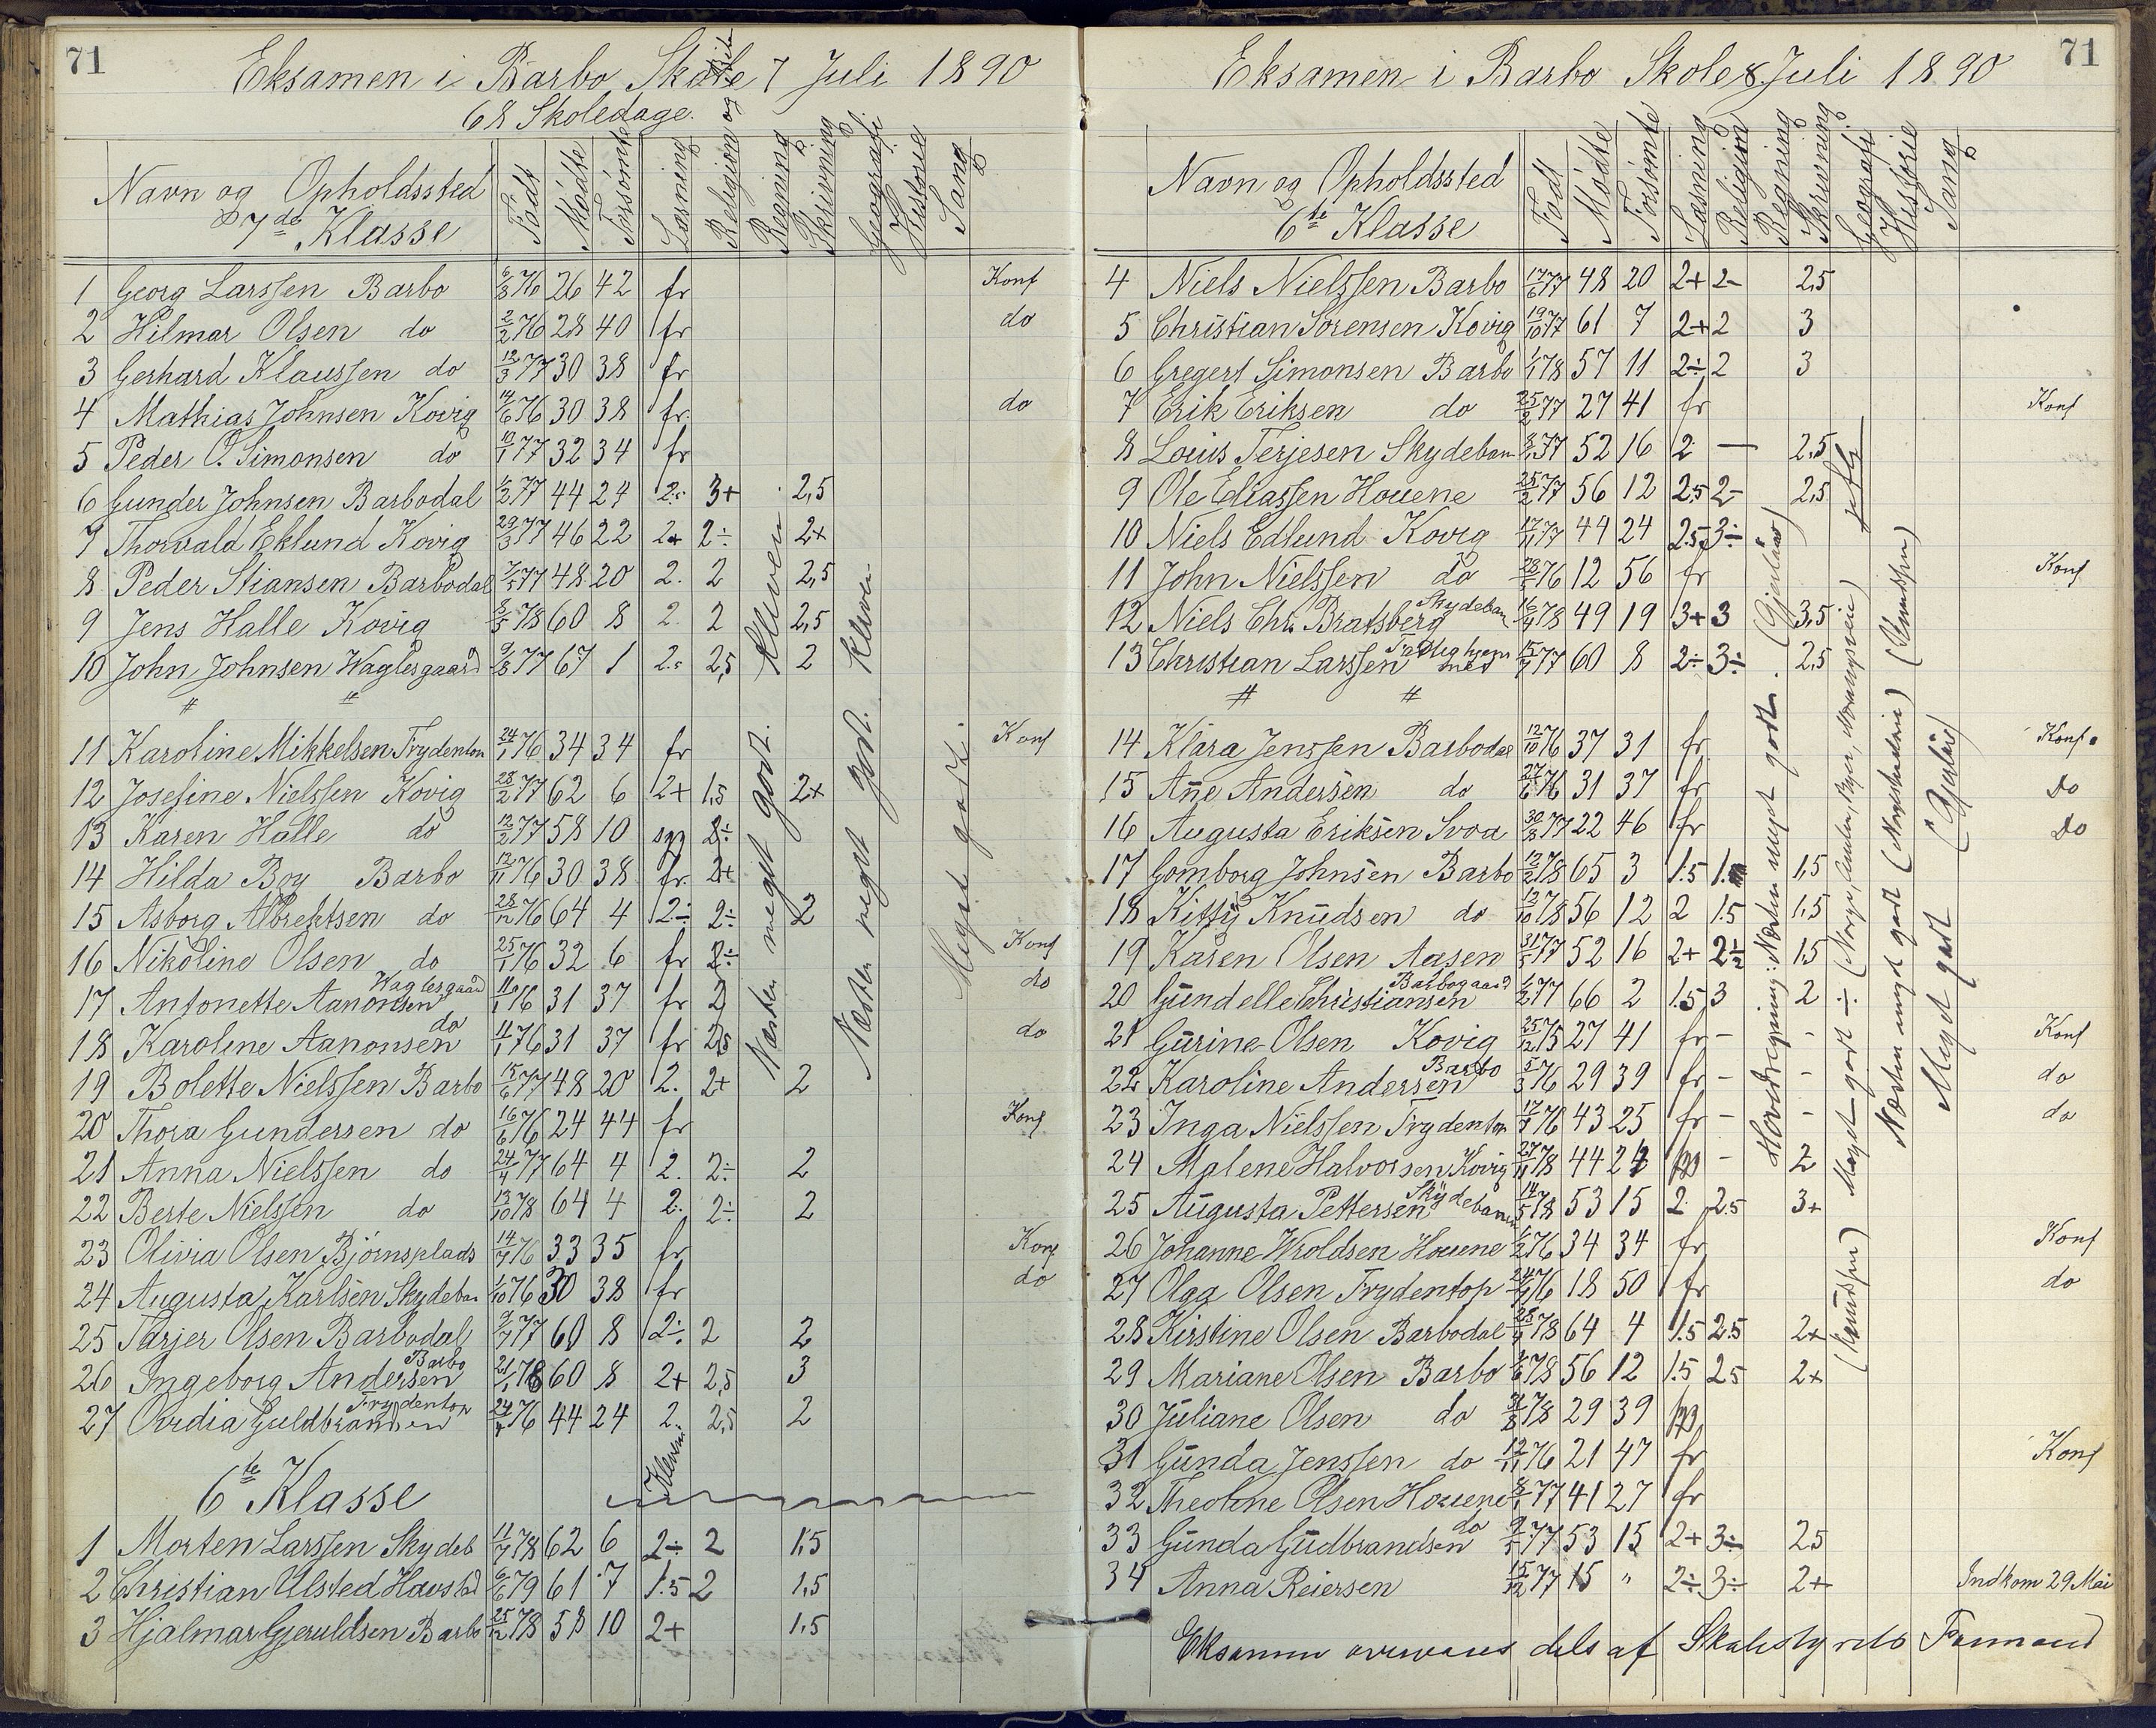 71
Eksamen i Barbo Skole 7 Juli 1890
68 Skoledage.
Navn og Opholdssted Födt Mødte Forsömte Læsning Religion og Regning Skrivning Geografi Historie Sang
7de Klasse
1 Georg Larssen Barbo 6/8 76 26 42 fr Konf
2 Hilmar Olsen do 2/2 76 28 40 fr do
3 Gerhard Klaussen do 12/3 77 30 38 fr
4 Mathias Johnsen Kovig 14/6 76 30 38 fr. do
5 Peder O. Simonsen do 10/1 77 32 34 fr
6 Gunder Johnsen Barbodal 6/2 77 44 24 2. 3+ 2,5
7 Thorvald Eklund Kovig 29/3 77 46 22 2+ 2÷ 2+
8 Peder Stiansen Barbodal 7/5 77 48 20 2. 2 2,5
9 Jens Halle Kovig 8/5 78 60 8 2. 2 2,5
10 John Johnsen Waglesgaard 9/8 77 67 1 2. 2,5 2
11 Karoline Mikkelsen Frydentop 24/1 76 34 34 fr Konf
12 Josefine Nielssen Kovig 28/2 77 62 6 2+ 1,5 2+
13 Karen Halle do 12/2 77 58 10 syg 2÷
14 Hilda Boy Barbo 12/11 76 30 38 fr. 2+
15 Asborg Albrektsen do 28/12 76 64 4 2÷ 2÷ 2
16 Nikoline Olsen do 25/1 76 32 6 fr 2÷ Konf
17 Antonette Aanonsen Waglesgaard 11/1 76 31 37 fr 2 do
18 Karoline Aanonsen do 11/1 76 31 37 fr 2,5 do
19 Bolette Nielssen Barbo 15/6 77 48 20 2. 2+ 2
20 Thora Gundersen do 16/6 76 24 44 fr Konf
21 Anna Nielssen do 24/4 77 64 4 2. 2÷ 2
22 Berte Nielssen do 13/10 78 64 4 2. 2÷ 2
23 Olivia Olsen Bjørnsplads 14/7 76 33 35 fr Konf
24 Augusta Karlsen Skydeban 1/10 76 30 38 fr do
25 Tarjer Olsen Barbodal 9/7 77 60 8 2÷ 2 2
26 Ingeborg Andersen Barbo 21/1 78 60 8 2+ 2,5 3
27 Ovidia Guldbrandsen Frydentop 24/7 76 44 24 2. 2,5 2
Næsten meget godt. Kleven
Næsten meget godt. Kleven
Meget godt.
6te Klasse
1 Morten Larssen Skydeb 11/7 78 62 6 2÷ 2 1,5
2 Christian Ulsted Havstad 6/6 79 61 7 1.5 2 1,5
3 Hjalmar Gjeruldsen Barbo 25/12 78 58 10 2+ 1,5
71
Eksamen i Barbo Skole 8 Juli 1890
Navn og Opholdssted Födt Mödte Forsömte Læsning Religion Regning Skrivning Geografi Historie Sang
6te Klasse
4 Niels Nielssen Barbo 17/6 77 48 20 2+ 2- 2,5
5 Christian Sörensen Kovig 19/10 77 61 7 2+ 2 3
6 Gregert Simonsen Barbo 1/1 78 57 11 2÷ 2 3
7 Erik Eriksen do 25/2 77 27 41 fr Konf
8 Louis Terjesen Skydeban 8/1 77 52 16 2 — 2,5
9 Ole Eliassen Houene 25/2 77 56 12 2.5 2- 2,5
10 Niels Edlund Kovig 17/11 77 44 24 2.5 3÷
11 John Nielssen do 28/5 76 12 56 fr Konf
12 Niels Chr. Bratsberg Skydeban 16/4 78 49 19 3+ 3 3,5
13 Christian Larssen Fattighjem met 15/7 77 60 8 2÷ 3÷ 2,5
14 Klara Jenssen Barbodal 12/10 76 37 31 fr Konf.
15 Ane Andersen do 27/6 76 31 37 fr do
16 Augusta Eriksen Svoa 30/8 77 22 46 fr do
17 Gomborg Johnsen Barbo 12/2 78 65 3 1.5 1. 1,5
18 Kitty Knudsen do 13/10 78 56 12 2 1.5 1,5
19 Karen Olsen Aasen 31/5 77 52 16 2+ 2½ 1,5
20 Gundelle Christiansen Barbogaard 1/2 77 66 2 1.5 3 2 ÷
21 Gurine Olsen Kovig 25/12 75 27 41 fr - - Konf
22 Karoline Andersen Barbo 5/3 76 29 39 fr - - do
23 Inga Nielssen Frydentop 17/7 76 43 25 fr - - do
24 Malene Halvorsen Kovig 27/11 78 44 24 - 2
25 Augusta Pettersen Skydebanen 14/5 78 53 15 2 2.5 3+
26 Johanne Wroldsen Houene 1/2 76 34 34 fr Konf
27 Olga Olsen Frydentop 76 18 50 fr do
28 Kirstine Olsen Barbodal 28/4 78 64 4 1.5 2.5 2+
29 Mariane Olsen Barbo 78 56 12 1.5 2.5 2+
30 Juliane Olsen do 78 29 39
31 Gunda Jenssen do 12/11 76 21 47 fr Konf
32 Theoline Olsen Houene 8/1 77 41 27 fr
33 Gunda Gudbrandsen do 9/5 77 53 15 2+ 3÷ 2.5
34 Anna Reiersen 15/12 77 15 " 2÷ 3÷ 2+ Indkom 29 Mai
Hovedregning: Næsten meget godt.
Meget godt ÷ (Norge,
(Knudsen)
Næsten meget godt (Knudsen)
Meget godt
Eksamen overværes dels af Skolestyrets Formand